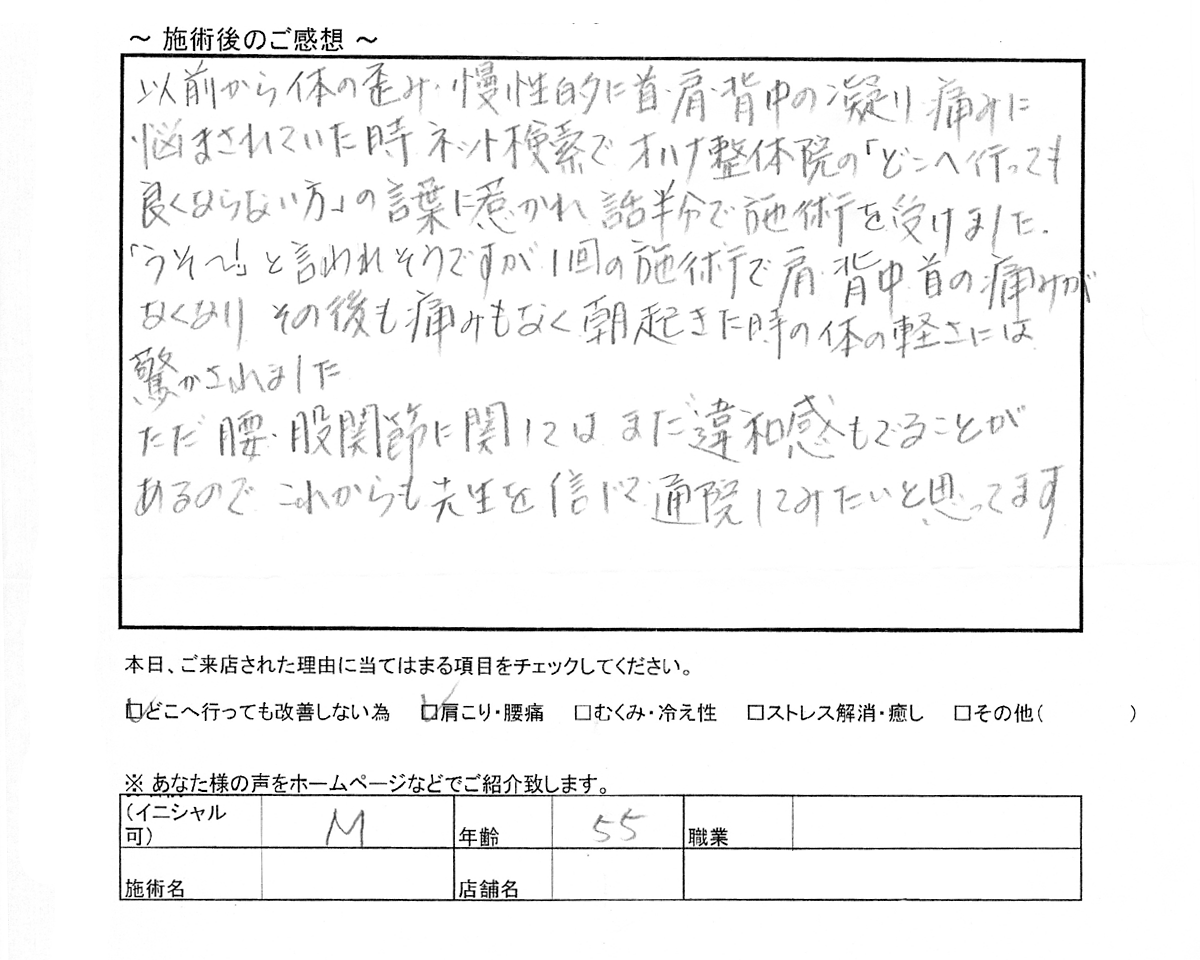 ～ 施術後のご感想 ～
以前から体の歪み・慢性的に首・肩・背中の凝り 痛みに
悩まされていた時 ネット検索で オハナ整体院の「どこへ行っても
良くならない方」の言葉に惹かれ 話半分で施術を受けました.
「うそ～!」と言われそうですが 1回の施術で肩・背中 首の痛みが
なくなり その後も痛みもなく 朝起きた時の体の軽さには
驚かされました
ただ 腰・股関節に関しては まだ違和感もでることが
あるので これからも先生を信じて通院してみたいと思ってます
本日、ご来店された理由に当てはまる項目をチェックしてください。
☑どこへ行っても改善しない為 ☑肩こり・腰痛 □むくみ・冷え性 □ストレス解消・癒し □その他( )
※ あなた様の声をホームページなどでご紹介致します。
(イニシャル可) M 年齢 55 職業
施術名 店舗名